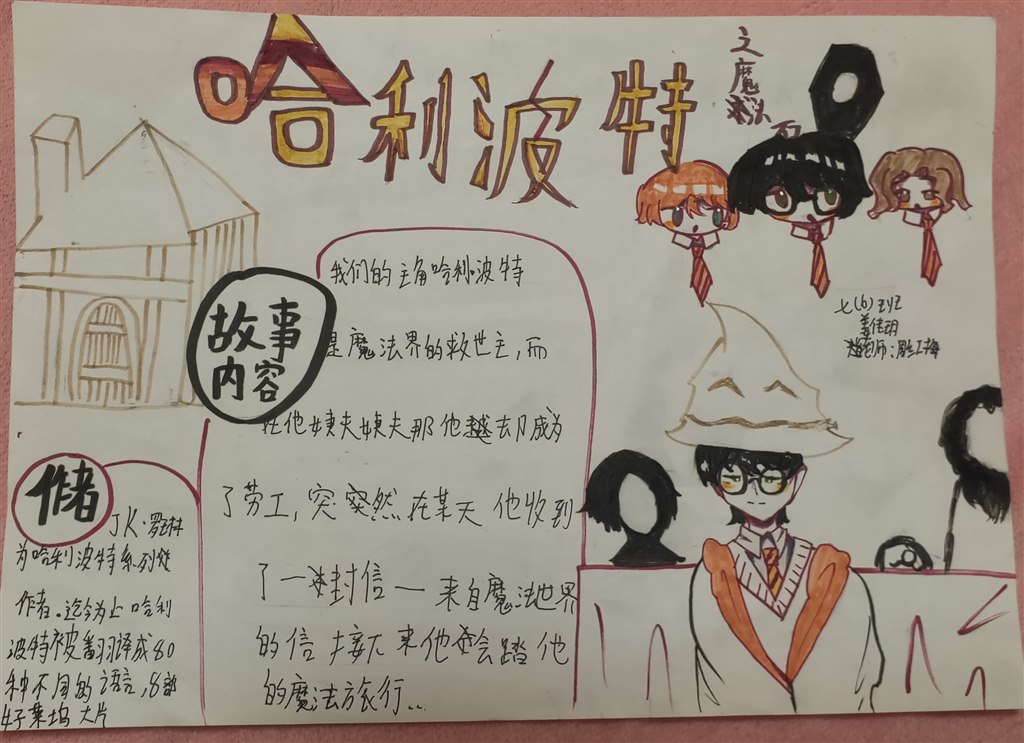 哈利波特
之魔法石
七(6)班
姜佳玥
故事
内容
我们的主角哈利·波特
是魔法界的救世主,而
在他姨夫姨夫那他越去几成为
了劳工,突突然在某天他收到
了一封信一来自魔法世界
的信接下来他会踏他
的魔法旅行..
作者
JK·罗琳
为哈利波特系列
作者。迄今为止哈利
波特被翻译成80
种不同的语言,8部
好莱坞大片